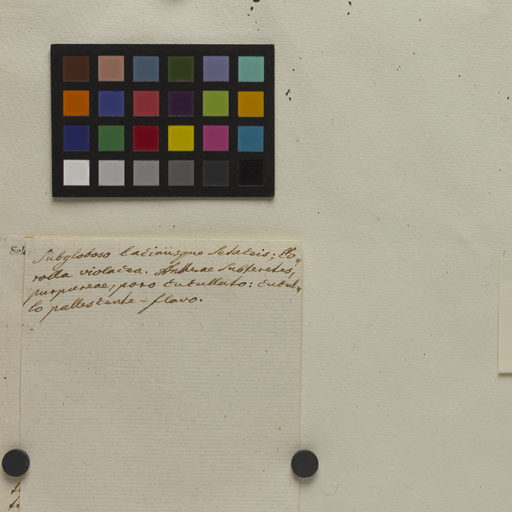 Sch
Subgloboso laciniisque setaceis; Co,,
rolla violacea. Antherae subteretes,
purpureae, poro cucullato: cucul,,
lo pallescente-flavo.